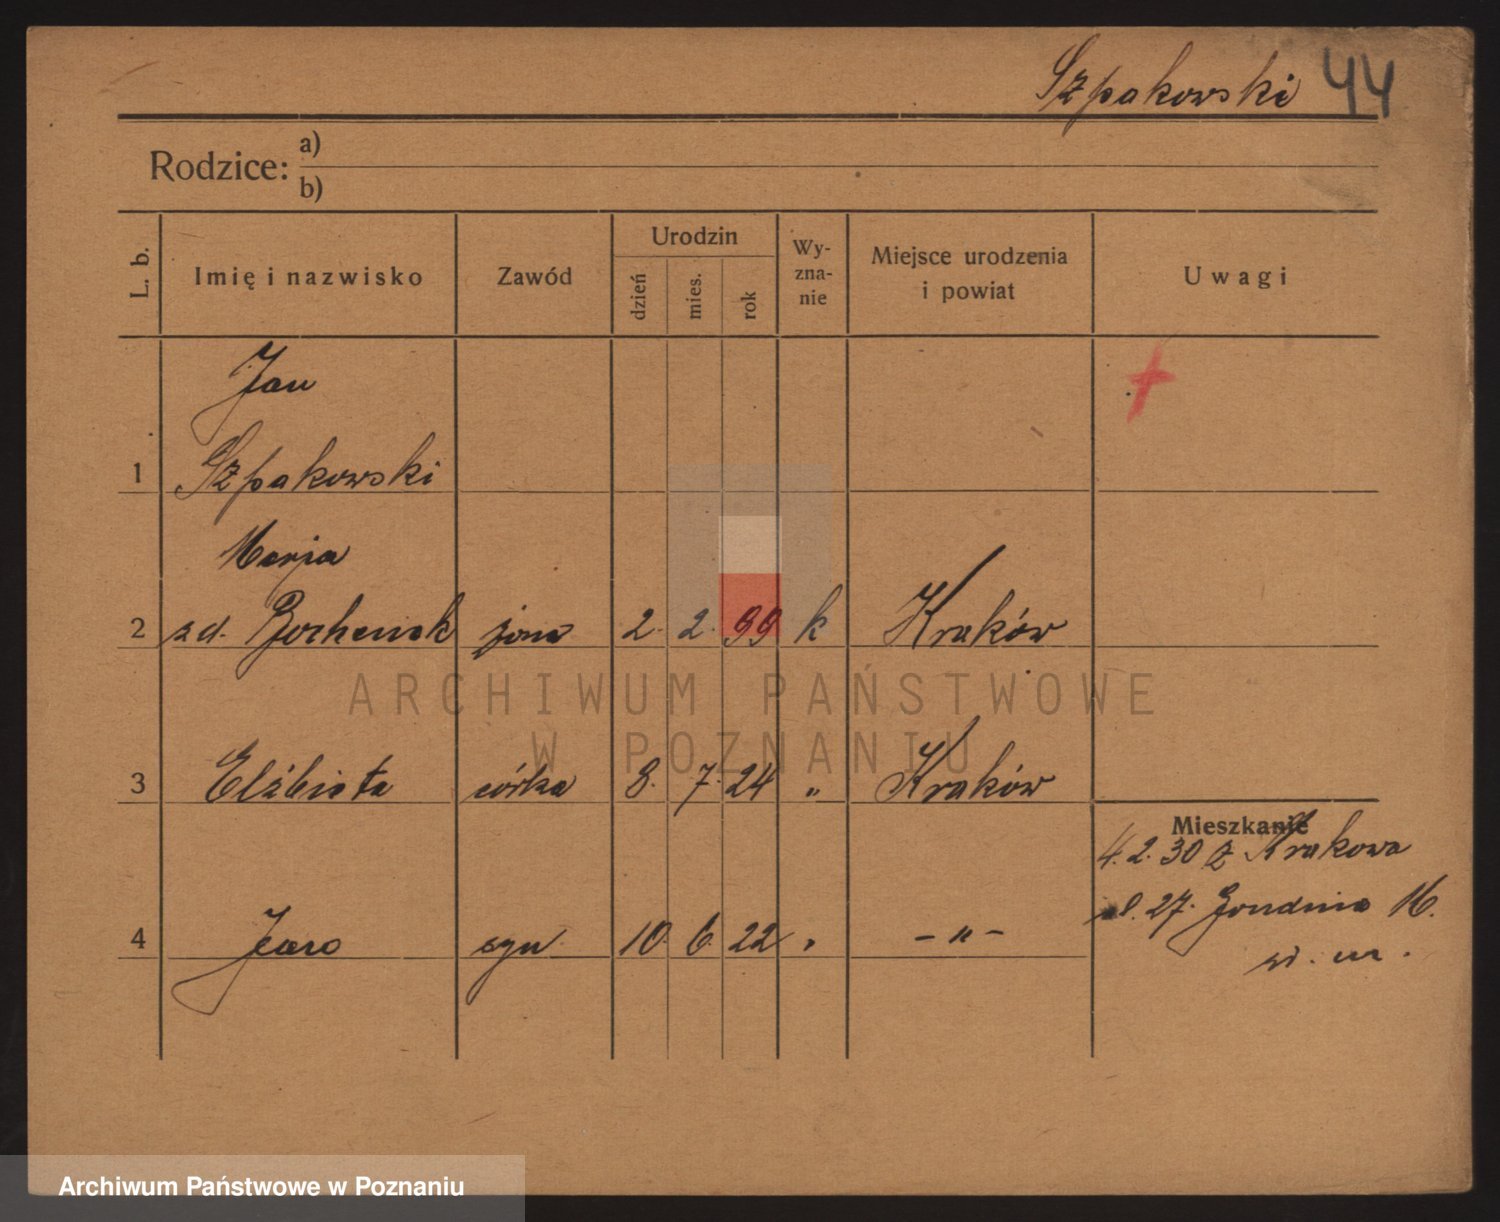 Szpakowski 44
Rodzice: a)
b)
L. b. Imię i nazwisko Zawód Urodzin dzień mies. rok Wy-zna-nie Miejsce urodzenia i powiat Uwagi
Jan
1 Szpakowski
Marja
2 zd. Bochenek żona 2. 2. 99 k Kraków
3 Elżbieta córka 8. 7. 24 " Kraków
Mieszkanie
4. 2. 30 z Krakowa
ul. 27. Grudnia 16.
4 syn 10. 6. 22 " - " -
ARCHIWUM PAŃSTWOWE
W POZNANIU
Archiwum Państwowe w Poznaniu